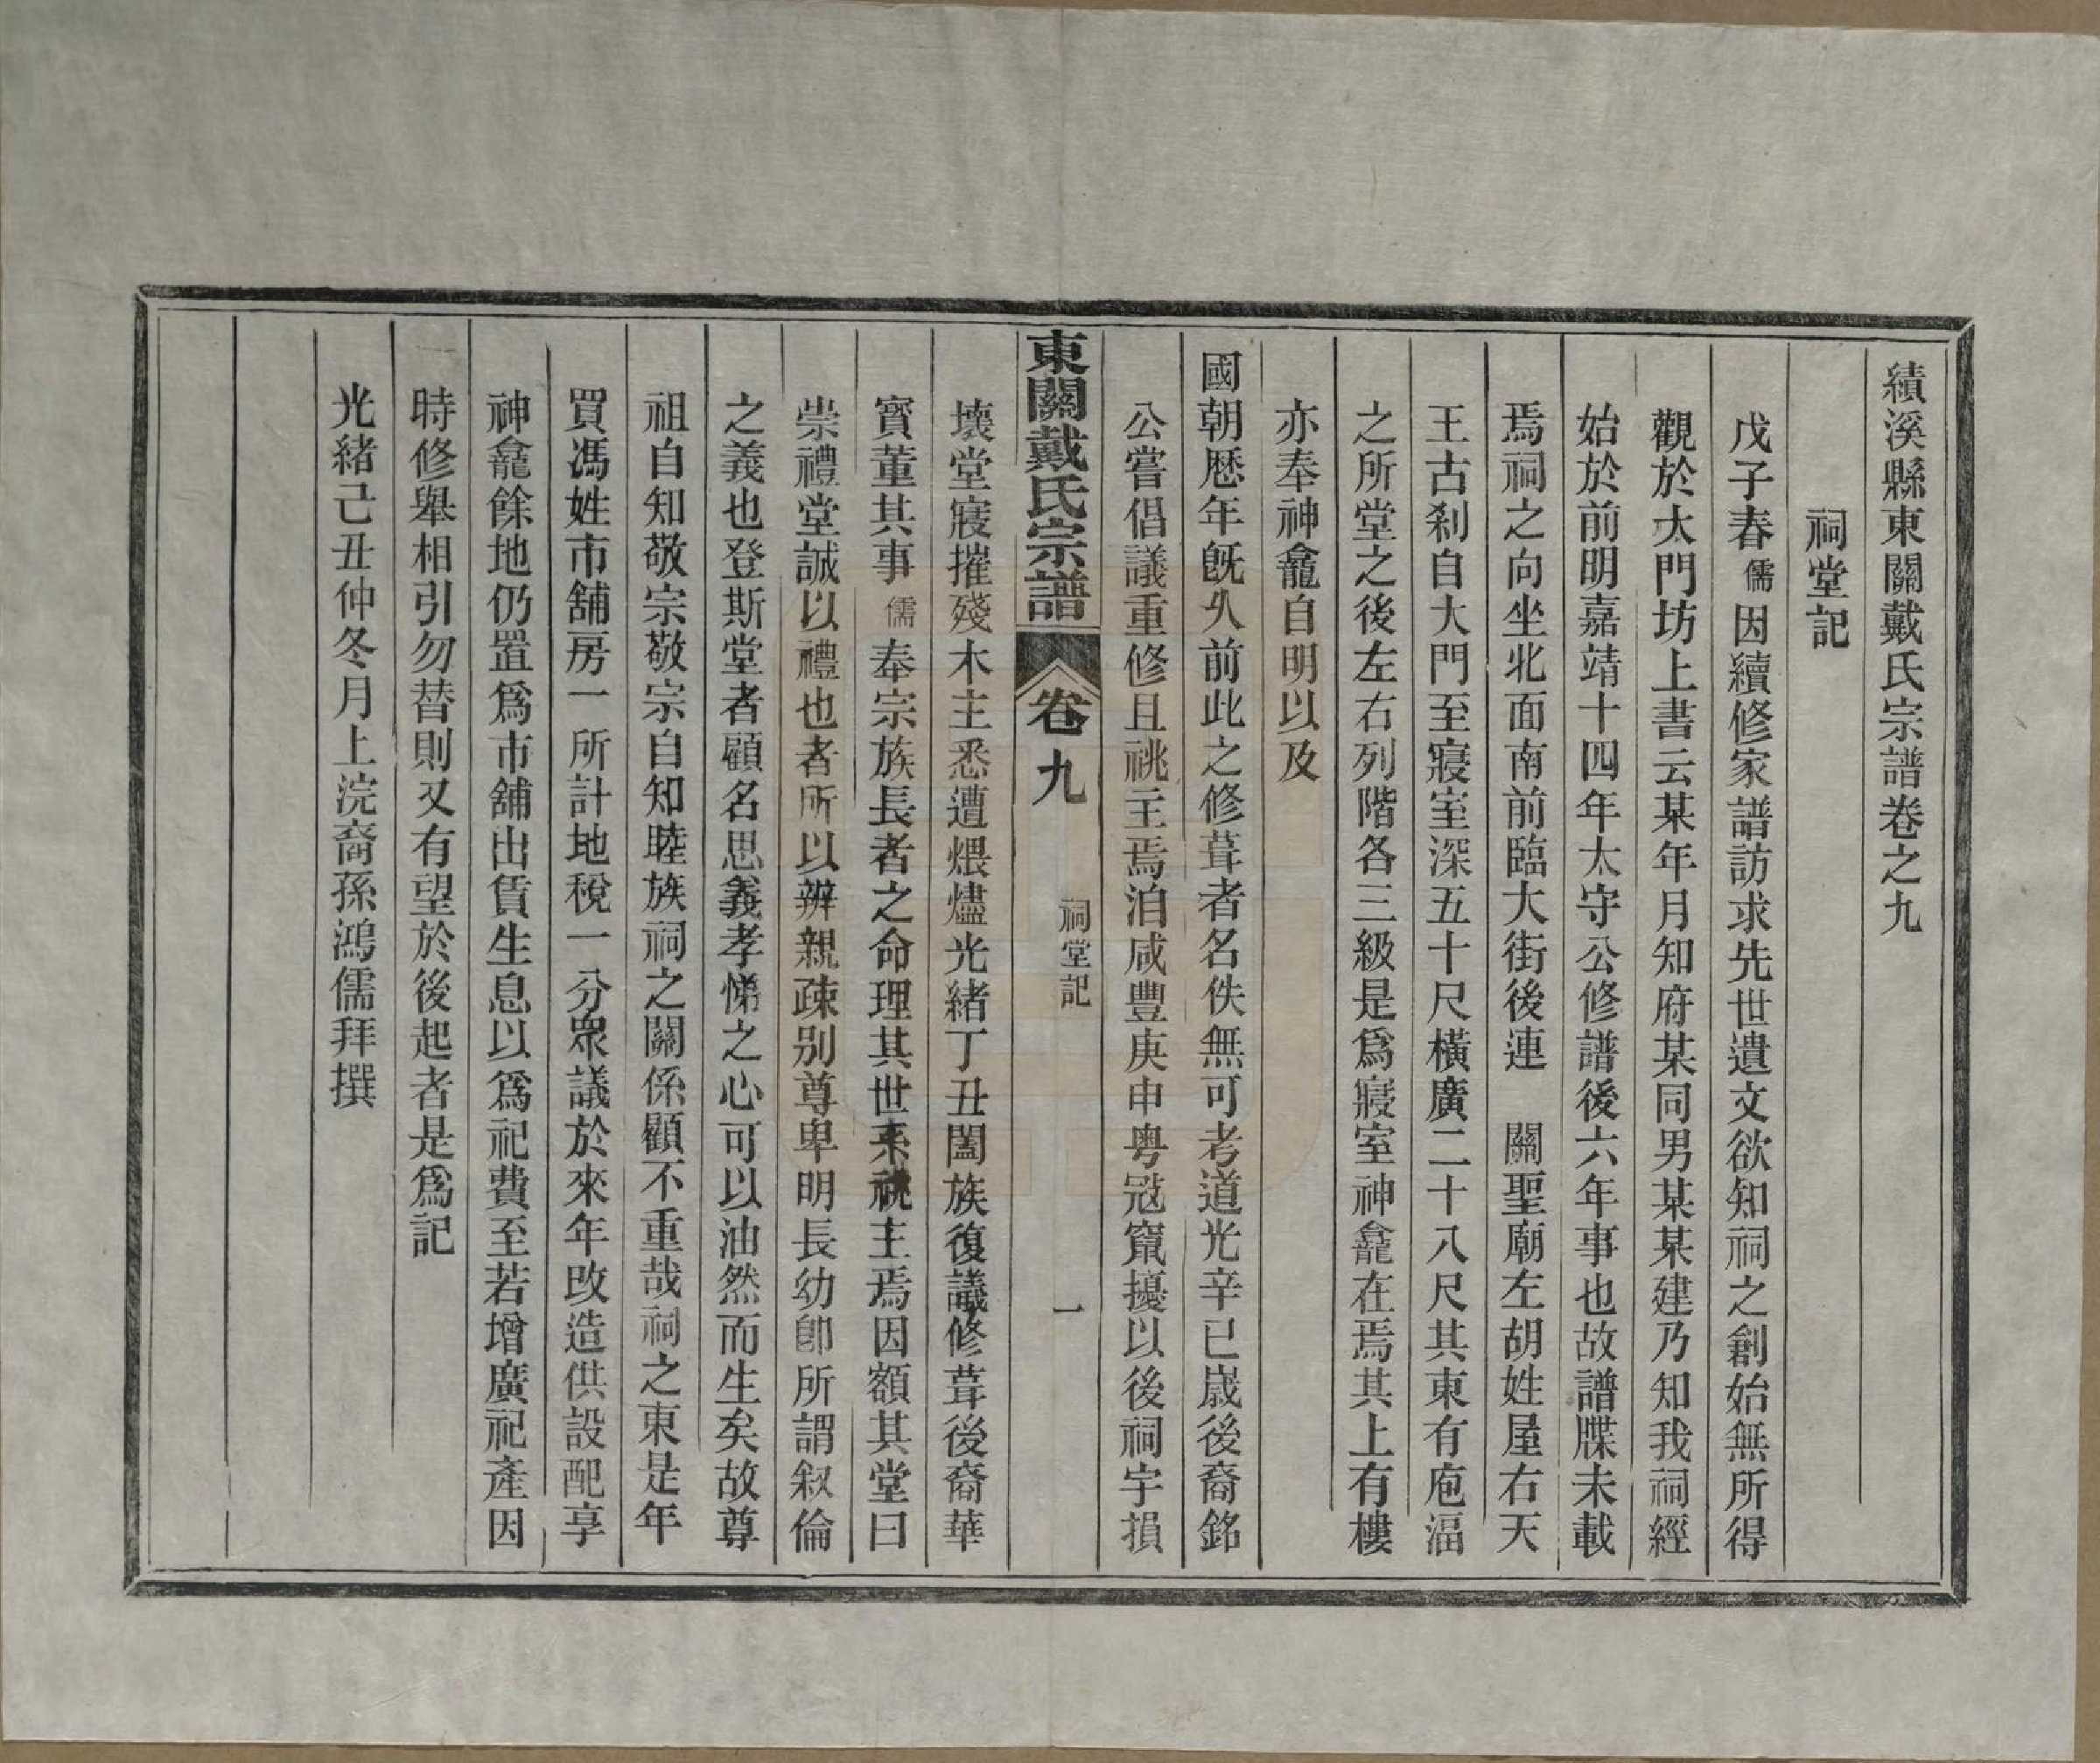 績溪縣東關戴氏宗譜卷之九
祠堂記
戊子春儒因續修家譜訪求先世遺文欲知祠之創始無所得
觀於大門坊上書云某年月知府某同男某某建乃知我祠經
始於前明嘉靖十四年太守公修譜後六年事也故譜牒未載
焉祠之向坐北面南前臨大街後連 關聖廟左胡姓屋右天
王古刹自大門至寢室深五十尺橫廣二十八尺其東有庖湢
之所堂之後左右列階各三級是爲寢室神龕在焉其上有樓
亦奉神龕自明以及
國朝歷年旣久前此之修葺者名佚無可考道光辛巳嵗後裔銘
公嘗倡議重修且祧主焉洎咸豐庚申粤寇竄擾以後祠宇損
東關戴氏宗譜 卷九 祠堂記 一
壞堂寢摧殘木主悉遭煨燼光緒丁丑闔族復議修葺後裔華
賓董其事儒奉宗族長者之命理其世系祧主焉因額其堂曰
崇禮堂誠以禮也者所以辨親疎別尊卑明長幼卽所謂叙倫
之義也登斯堂者顧名思義孝悌之心可以油然而生矣故尊
祖自知敬宗敬宗自知睦族祠之關係顧不重哉祠之東是年
買馮姓市舖房一所計地稅一分衆議於來年改造供設配享
神龕餘地仍置爲市舖出賃生息以爲祀費至若增廣祀產因
時修舉相引勿替則又有望於後起者是爲記
光緒己丑仲冬月上浣裔孫鴻儒拜撰